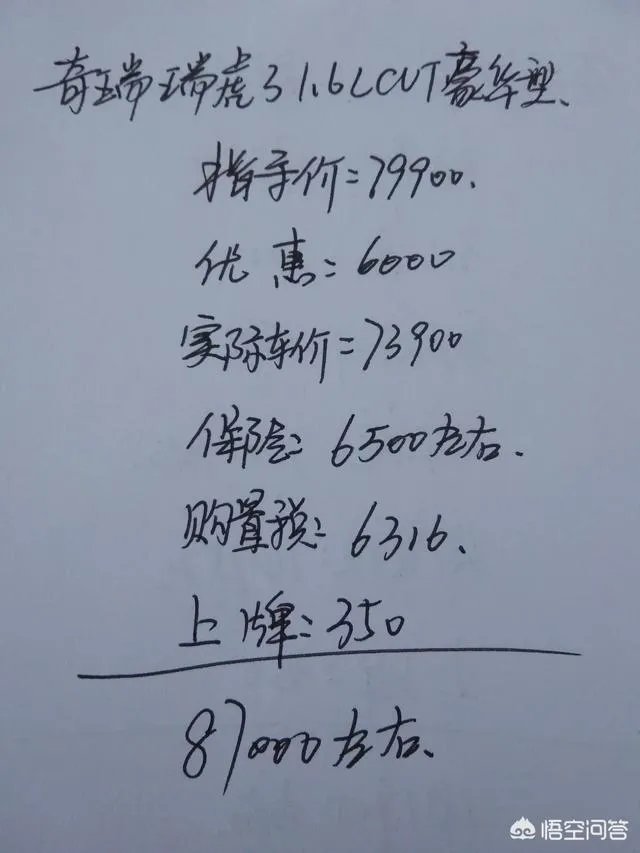 奇瑞瑞虎3 1.6L CVT豪华型、
指导价=79900.
优惠:6000
实际车价=73900
保险:6500左右.
购置税:6316、
上牌:350
87000左右、
悟空问答